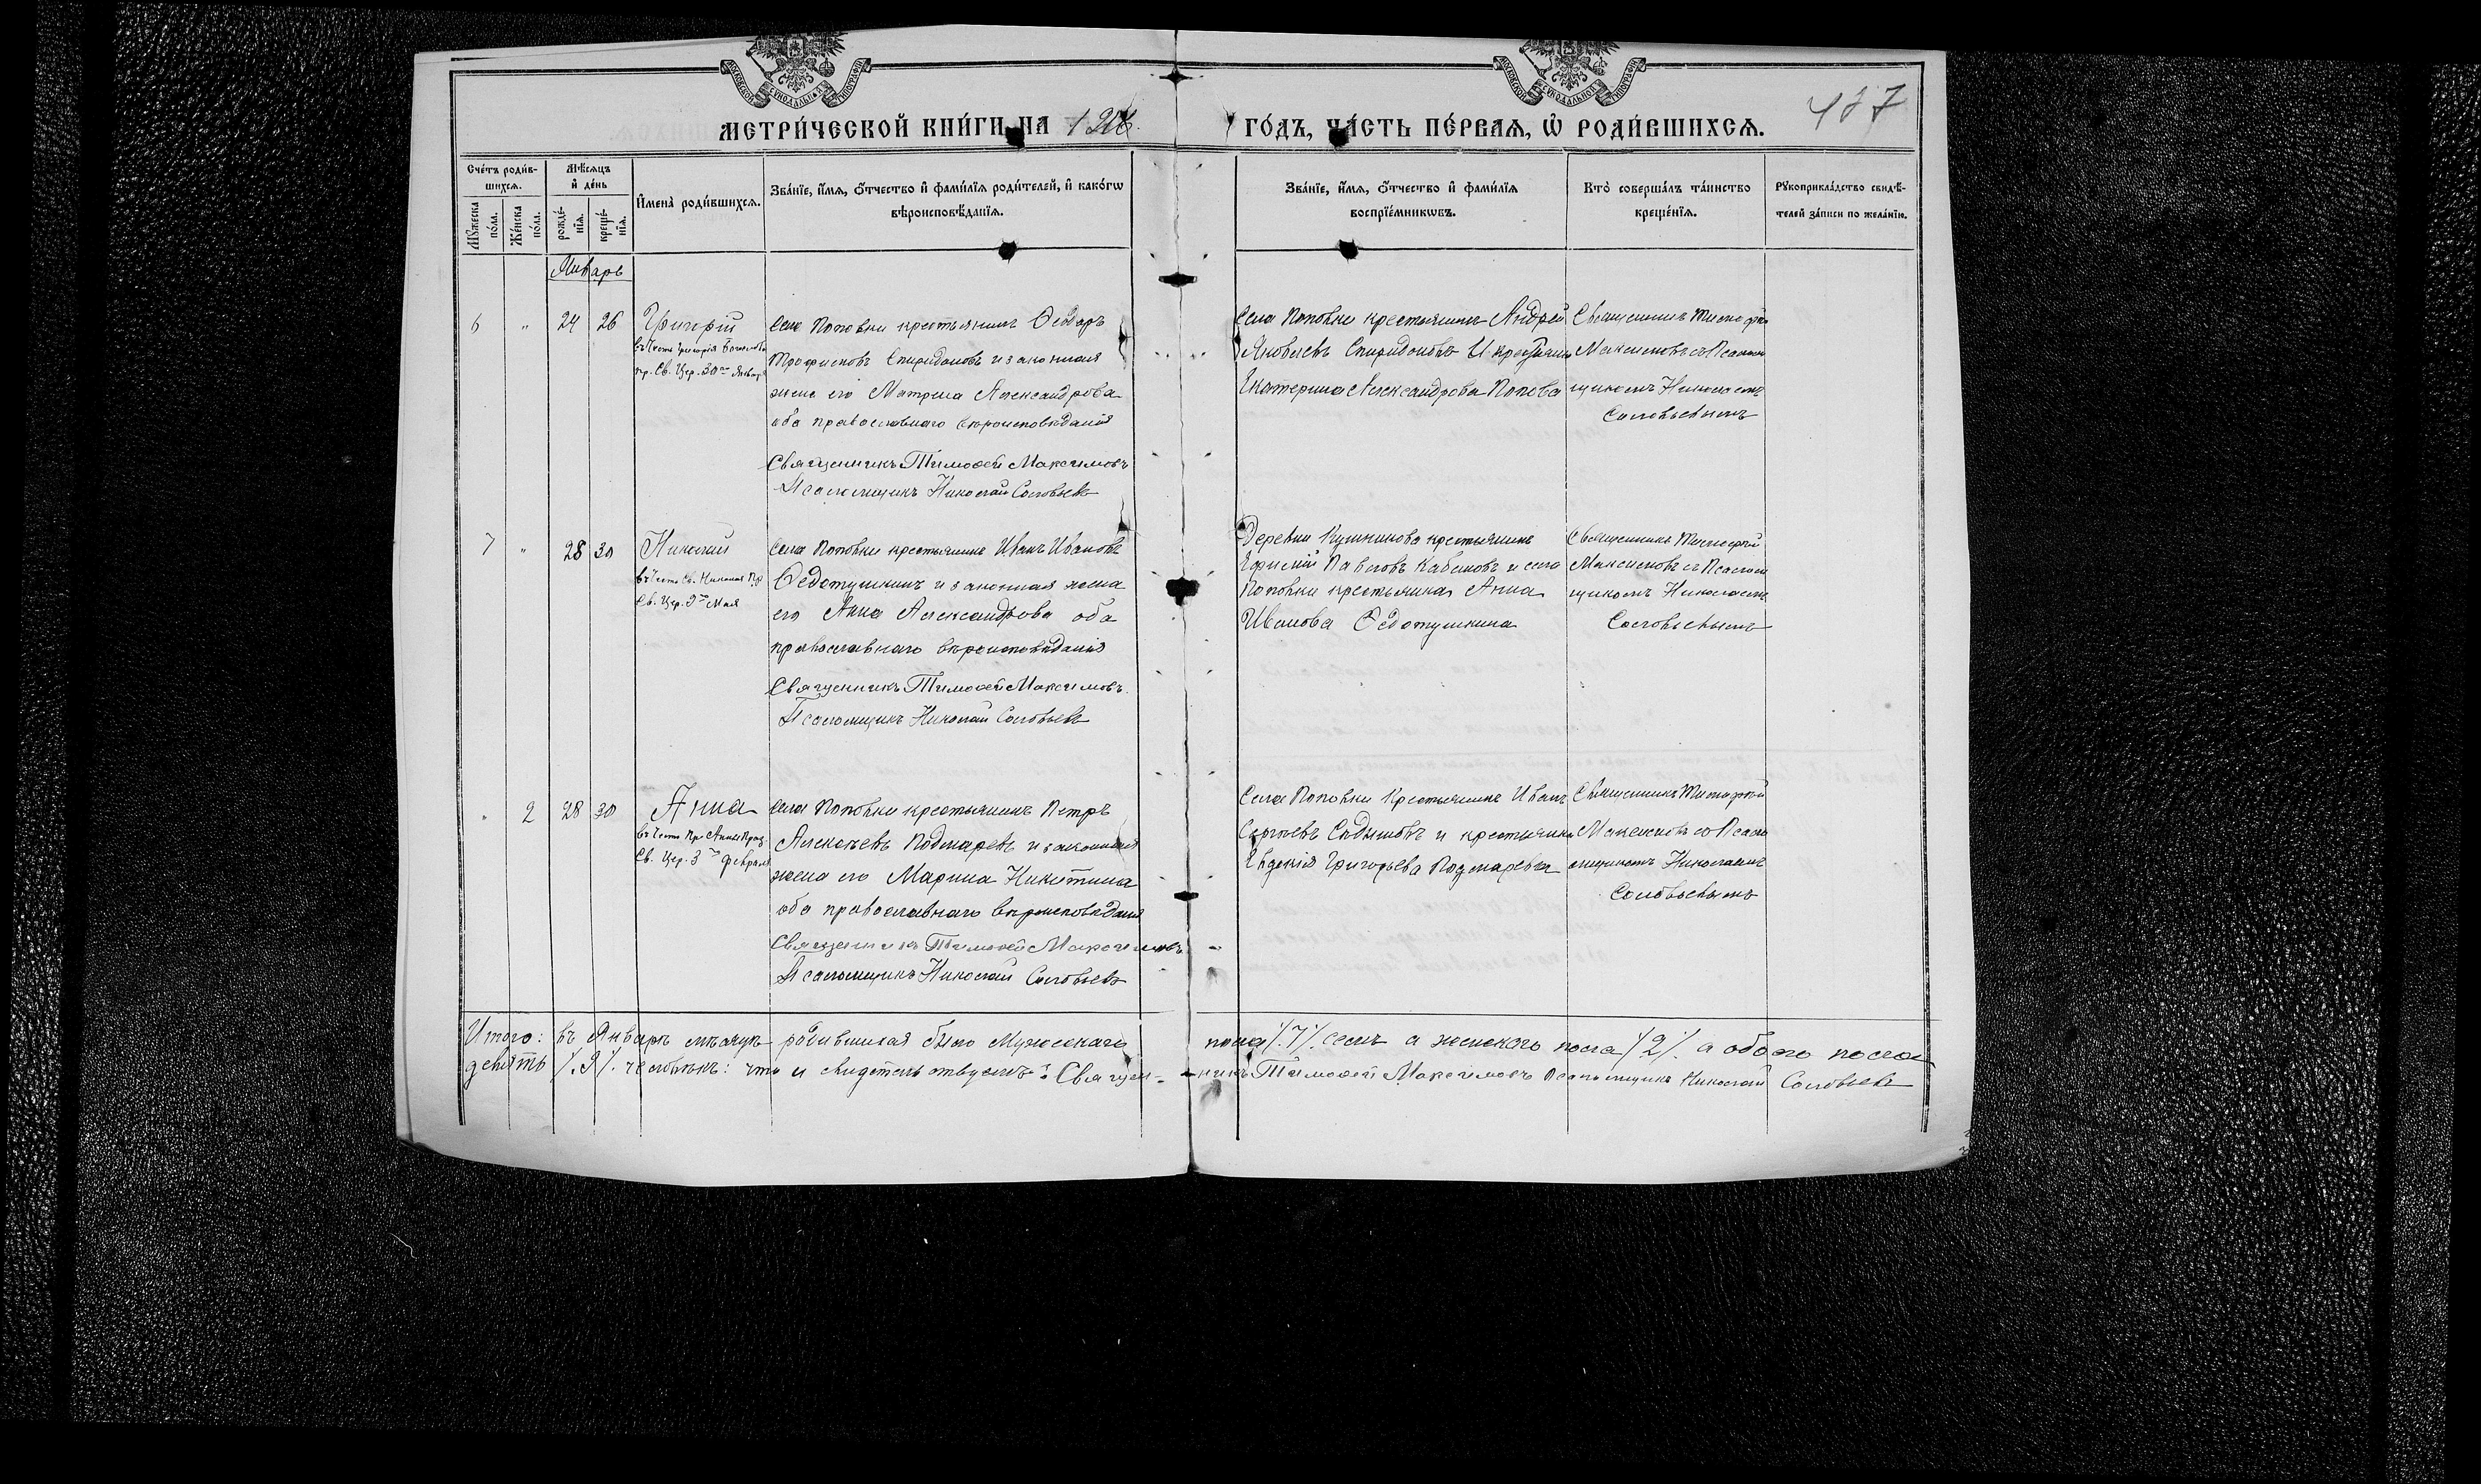 МОСКОВСКОЙ СУНОДАЛЬНОЙ ТИПОГРАФІИ
МОСКОВСКОЙ СУНОДАЛЬНОЙ ТИПОГРАФІИ
МЕТРИ́ЧЕСКОЙ КНИ́ГИ НА
ГО́ДЪ, ЧА́СТЬ ПЕ́РВАЯ, Ѡ҆ РОДИ́ВШИХСЯ.
Сче́тъ роди́в-
шихся.
Мѣ́сяцъ
и҆ де́нь
Мꙋ́жеска
по́ла.
Же́нска
по́ла.
рожде́-
нїя.
креще́-
нїя.
И҆мена̀ роди́вшихся.
Зва́нїе, и҆́мя, ѻ҆́тчество и҆ фами́лїя роди́телей, и҆ како́гѡ
вѣроисповѣ́данїя.
Зва́нїе, и҆́мя, ѻ҆́тчество и҆ фами́лїя
воспрїе́мникѡвъ.
Кто̀ соверша́лъ та́инство
креще́нїя.
Рꙋкоприкла́дство свидѣ́-
телей за́писи по жела́нїю.
Январь
6 " 24 26 Григорій
въ честь Григорія Богослова
пр. Св. Цер. 30го Января
Села Поповки крестьянинъ Ѳеодоръ
Трофимовъ Спиридоновъ и законная
жена его Матрена Александрова
оба православнаго вѣроисповѣданія
Священникъ Тимоѳей Максимовъ
Псаломщикъ Николай Соловьевъ
Села Поповки крестьянинъ Андрей
Яковлевъ Спиридоновъ и крестьянка
Екатерина Александрова Попова
Священникъ Тимоѳей
Максимовъ съ Псалом
щикомъ Николаемъ
Соловьевымъ
7 " 28 30 Николай
въ честь Св. Николая Пр.
Св. Цер. 9го Мая
Села Поповки крестьянинъ Иванъ Ивановъ
Ѳедотушкинъ и законная жена
его Анна Александрова оба
православнаго вѣроисповѣданія
Священникъ Тимоѳей Максимовъ.
Псаломщикъ Николай Соловьевъ
Деревни крестьянинъ
Ефимій Павловъ Кабановъ и села
Поповки крестьянка Анна
Иванова Ѳедотушкина
Священникъ Тимоѳей
Максимовъ съ Псалом
щикомъ Николаемъ
Соловьевымъ
" 2 28 30 Анна
въ честь Пр. Анны Прор.
Св. Цер. 3го февраля
Села Поповки крестьянинъ Петръ
Алексѣевъ Подмаревъ и законная
жена его Марина Никитина
оба православнаго вѣроисповѣданія
Священникъ Тимоѳей Максимовъ
Псаломщикъ Николай Соловьевъ
Села Поповки Крестьянинъ Иванъ
Сергѣевъ и крестьянка
Евдокія Григорьева Подмарева
Священникъ Тимоѳей
Максимовъ со Псало
мщикомъ Николаемъ
Соловьевымъ
Итого: въ Январѣ мѣсяцѣ родившихся было Мужескаго пола /.7/. семь а женскаго пола /2/. а обоего пола
девять /.9/. человѣкъ: что и свидѣтельствуемъ: Священ-никъ Тимоѳей Максимовъ Псаломщикъ Николай Соловьевъ